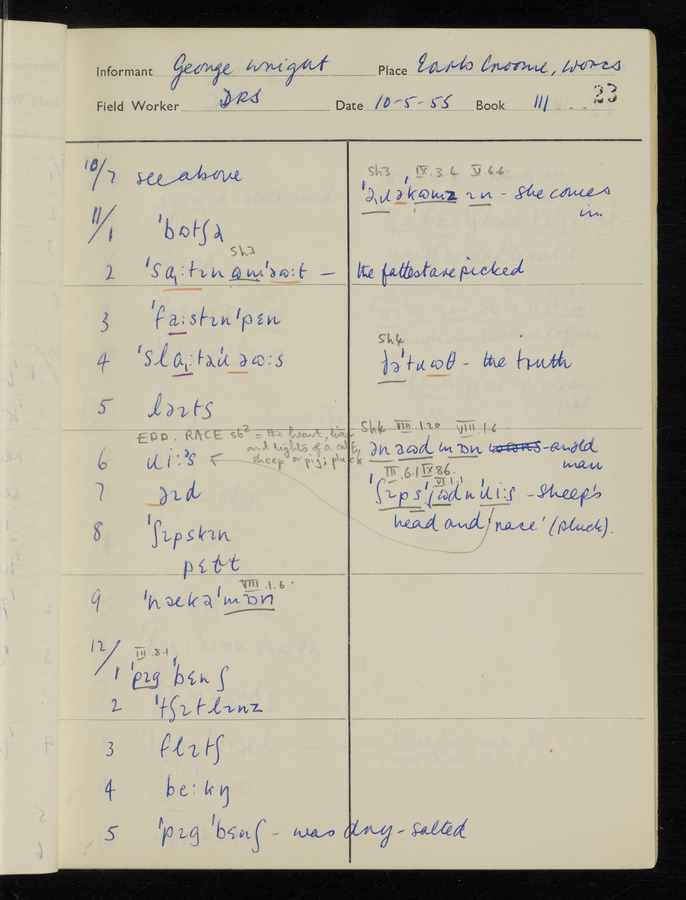 Informant George Wright Place Earls Croome, Worcs
Field Worker DRS Date 10-5-55 Book III 23
10/7 see above
11/1 ˈbɒtʃə
2 ˈsɑ̨ːtɪn
Sh3
– the fattest are picked
3 ˈfaːstɪnˈpɛn
4
5 lɪɪts
E.D.D. RACE sb² = the heart, liver
and lights of a calf,
sheep or pig; pluck
6 ɹiːᵊs
7 əɪd
8 ˈʃɪpskɪn
pɛɫt
VIII.1.6.
9 ˈnækəˈmɒn
12/
III.8.1
1 ˈpɪgˈbɛnʃ
2 ˈtʃɪtlɪnz
3 flɪtʃ
4 beːkŋ
5 ˈpɪgˈbɛnʃ - was dry-salted
Sh3 IX.3.4 V.6.6
- she comes
in.
Sh4
- the truth
Sh4 VIII 1.20 VIII.1.6
- an old
man
III.6.1 IX.8.6.
VI 1.1
- sheep's
head and 'race' (pluck).